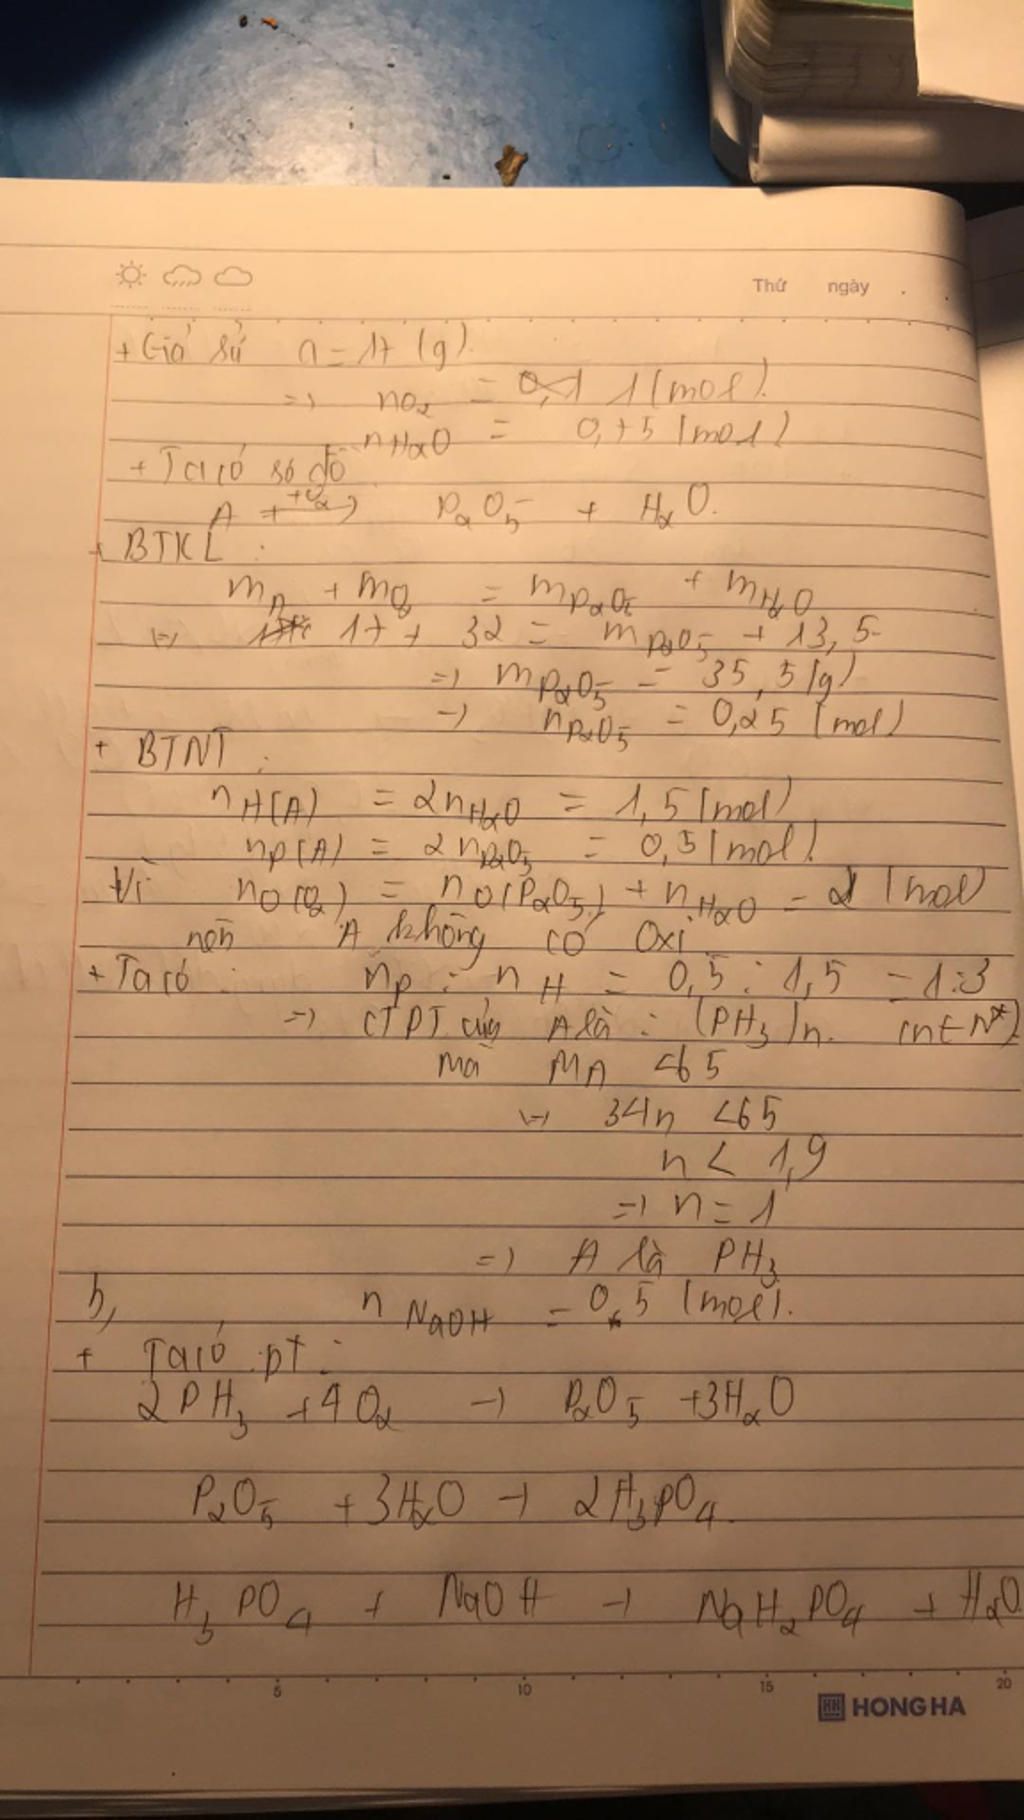 Thứ ngày
+ Giả sử a = 17 (g).
=> nO2 = 1 (mol).
nH2O = 0,75 (mol)
+ Ta có sơ đồ
A + +O2 → P2O5 + H2O.
+ BTKL :
mA + mO2 = mP2O5 + mH2O
=> 17 + 32 = mP2O5 + 13,5
=> mP2O5 = 35,5 (g)
=> nP2O5 = 0,25 (mol)
+ BTNT :
nH(A) = 2nH2O = 1,5 (mol)
nP(A) = 2nP2O5 = 0,5 (mol).
Vì nO(O2) = nO(P2O5) + nH2O = 2 (mol)
nên A không có Oxi
+ Ta có : nP : nH = 0,5 : 1,5 = 1:3
=> CTPT của A là : (PH3)n. (n∈N*)
mà MA <65
=> 34n <65
n < 1,9
=> n = 1
=> A là PH3
b, nNaOH = 0,5 (mol).
+ Ta có pt :
2PH3 + 4O2 → P2O5 + 3H2O
P2O5 + 3H2O → 2H3PO4.
H3PO4 + NaOH → NaH2PO4 + H2O.
5 10 15 20
HH HONG HA